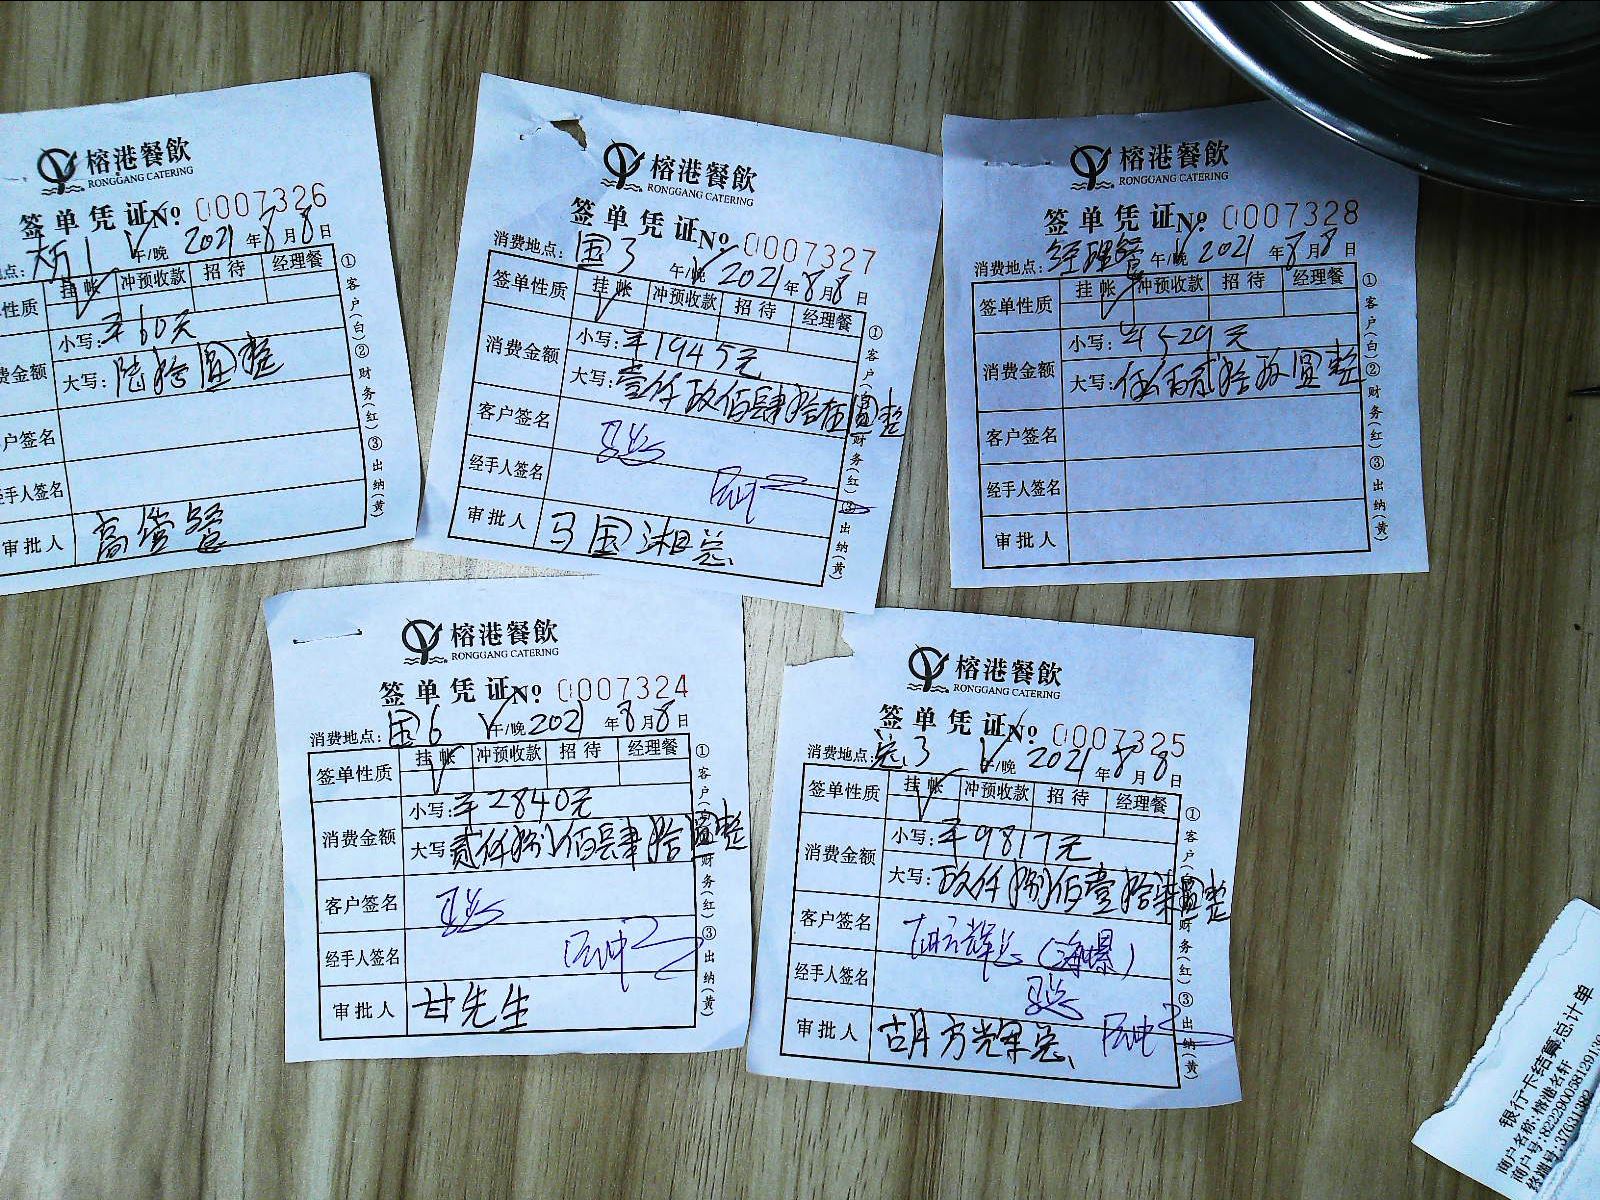 榕港餐飲
RONGGANG CATERING
签单凭证No. 0007326
点: 大厅1 午/晚 2021年8月8日
性质 挂帐 冲预收款 招待 经理餐
费金额 小写: ¥60元
大写: 陆拾圆整
户签名
手人签名
审批人 高管餐
①客户(白)②财务(红)③出纳(黄)
榕港餐飲
RONGGANG CATERING
签单凭证No. 0007327
消费地点: 国3 午/晚 2021年8月8日
签单性质 挂帐 冲预收款 招待 经理餐
消费金额 小写: ¥1945元
大写: 壹仟玖佰肆拾伍圆整
客户签名
经手人签名
审批人 马国湘总
①客户(白)②财务(红)③出纳(黄)
榕港餐飲
RONGGANG CATERING
签单凭证No. 0007328
消费地点: 经理餐 午/晚 2021年8月8日
签单性质 挂帐 冲预收款 招待 经理餐
消费金额 小写: ¥529元
大写: 伍佰贰拾玖圆整
客户签名
经手人签名
审批人
①客户(白)②财务(红)③出纳(黄)
榕港餐飲
RONGGANG CATERING
签单凭证No. 0007324
消费地点: 国6 午/晚 2021年8月8日
签单性质 挂帐 冲预收款 招待 经理餐
消费金额 小写: ¥2840元
大写: 贰仟捌佰肆拾圆整
客户签名
经手人签名
审批人 甘先生
①客户(白)②财务(红)③出纳(黄)
榕港餐飲
RONGGANG CATERING
签单凭证No. 0007325
消费地点: 总3 午/晚 2021年8月8日
签单性质 挂帐 冲预收款 招待 经理餐
消费金额 小写: ¥9817元
大写: 玖仟捌佰壹拾柒圆整
客户签名
经手人签名
审批人 胡方辉总
①客户(白)②财务(红)③出纳(黄)
银行卡结算总计单
商户名称: 榕港名轩
商户号: 8222900581291
终端号: 37631382